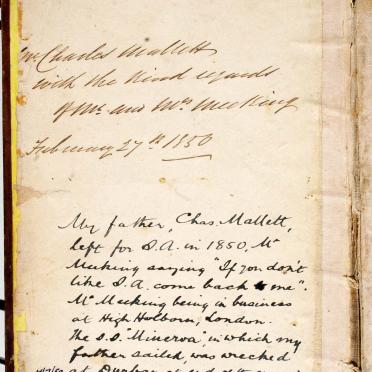 Mr Charles Mallett
with the kind regards
of Mr. and Mrs Meeking
February 27th 1850
My father, Chas. Mallett,
left for S.A. in 1850, Mr
Meeking saying "If you don't
like S.A. come back to me".
Mr Meeking being in business
at High Holborn, London.
The S.S. "Minerva", in which my
father sailed, was wrecked
at Durban